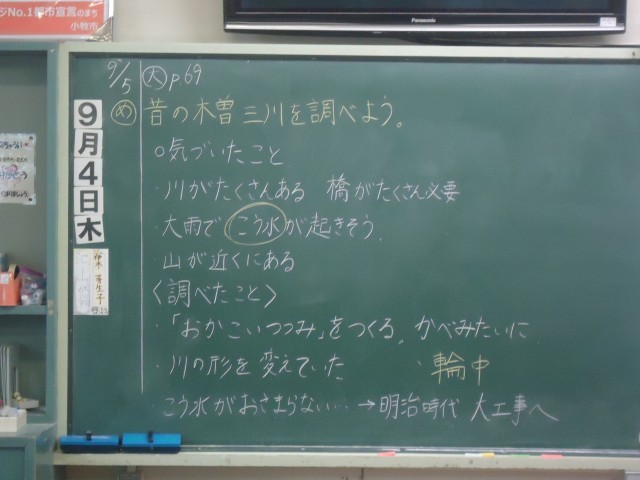 No.1都市宣言のまち
小牧市
Panasonic
9/5 大 p69
め 昔の木曽三川を調べよう。
○気づいたこと
・川がたくさんある 橋がたくさん必要
・大雨で こう水が起きそう。
・山が近くにある
〈調べたこと〉
・「おかこいつつみ」をつくる。かべみたいに
・川の形を変えていた ・輪中
・こう水がおさまらない… →明治時代 大工事へ
9月4日木